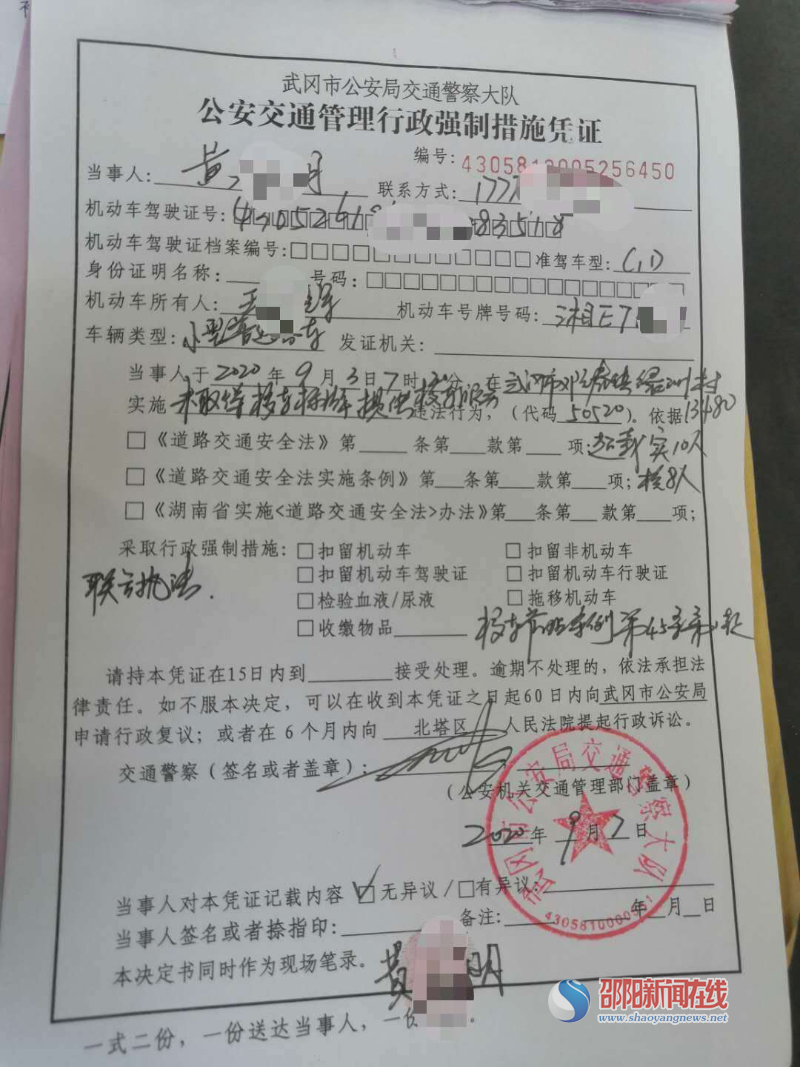 武冈市公安局交通警察大队
公安交通管理行政强制措施凭证
编号: 4305812005256450
当事人: 黄 联系方式: 177
机动车驾驶证号:
机动车驾驶证档案编号: 准驾车型: C1D
身份证明名称: 号码:
机动车所有人: 王 机动车号牌号码: 湘E7
车辆类型: 小型普通客车 发证机关:
当事人于2020年9月3日7时20分,在武冈市邓家铺镇 村
实施未取得校车标牌提供校车服务违法行为,(代码50520)。依据13480
□《道路交通安全法》第 条第 款第 项; 超载 实10人
□《道路交通安全法实施条例》第 条第 款第 项; 核8人
□《湖南省实施<道路交通安全法>办法》第 条第 款第 项;
采取行政强制措施: □扣留机动车 □扣留非机动车
联合执法. □扣留机动车驾驶证 □扣留机动车行驶证
□检验血液/尿液 □拖移机动车
□收缴物品 校车 条例第45条第 款
请持本凭证在15日内到 接受处理。逾期不处理的,依法承担法
律责任。如不服本决定,可以在收到本凭证之日起60日内向武冈市公安局
申请行政复议;或者在6个月内向 北塔区 人民法院提起行政诉讼。
交通警察(签名或者盖章):
(公安机关交通管理部门盖章)
2020年9月7日
武冈市公安局交通警察大队
当事人对本凭证记载内容 ☑无异议/□有异议:
当事人签名或者捺指印: 备注: 年 月 日
本决定书同时作为现场笔录。 黄 明
一式二份,一份送达当事人,一份
邵阳新闻在线
www.shaoyangnews.net